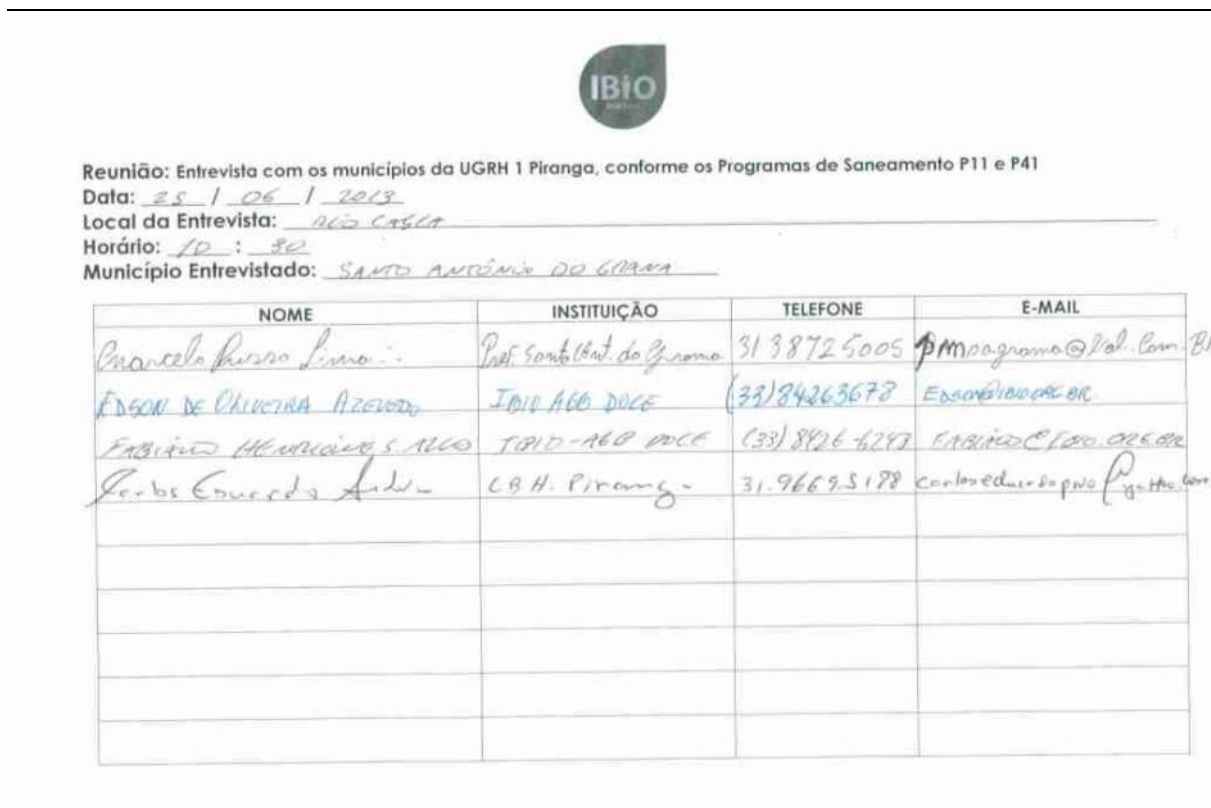 IBiO
Reunião: Entrevista com os municípios da UGRH 1 Piranga, conforme os Programas de Saneamento P11 e P41
Data: 25 / 06 / 2013
Local da Entrevista: RIO CASCA
Horário: 10 : 30
Município Entrevistado: SANTO ANTÔNIO DO GRAMA
NOME INSTITUIÇÃO TELEFONE E-MAIL
Marcelo Russo Lima Pref. Santo Ant. do Grama 31 38725005
EDSON DE OLIVEIRA AZEVEDO IBIO AGB DOCE (33)84263678
FABIANO HENRIQUE S. IBIO-AGB DOCE (33) 8426-6243
Carlos Eduardo CBH. Piranga 31.96695188